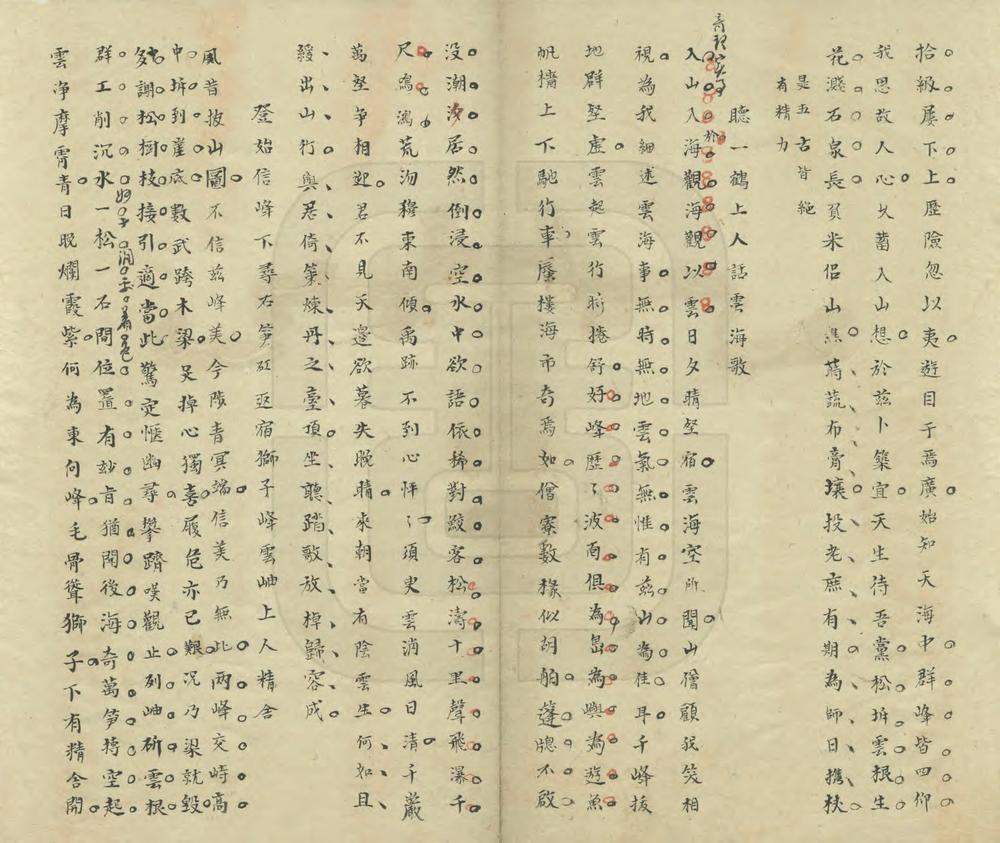 拾級屢下上歷險忽以夷遊目于焉廣始知天海中群峰皆四仰
我思故人心久蓄入山想於茲卜築宜天生待吾黨松㙛雲根生
花濺石泉長貧米侶山樵蒔蔬布膏壤投老庶有期為師日攜杖
是五古皆絕
有精力
聽一鶴上人話雲海歌
入山入海觀於海觀以雲日夕晴壑宿雲海空所聞山僧顧我笑相
視為我細述雲海事無時無地雲氣無惟有茲山為佳耳千峰拔
地群壑虛雲起雲行眎捲舒好峰歷歷波面俱為島為嶼為遊魚
帆檣上下馳行車蜃樓海市奇焉如僧寮數椽似胡舶蓬牕不啟
没潮汐居然倒浸空水中欲語依稀對鮫客松濤十里聲飛瀑千
尺鳴鴻荒沕穆東南傾禹跡不到心怦怦須臾雲消風日清千巖
萬壑爭相迎君不見天邊欲暮失晚晴來朝當有陰雲生何如且
緩出山行與君倚策煉丹之臺頂坐聽踏歌放棹歸容成
登始信峰下尋石筍矼返宿獅子峰雲岫上人精舍
風昔披山圖不信茲峰美今陟青冥端信美乃無此兩峰交峙高
中坼到崖底數武跨木梁吴掉心獨喜履危亦已艱况乃梁就毀
多謝松樹枝接引適當此驚定愜幽尋攀躋嘆觀止列岫斫雲根
群工削沉水一松一石間位置有玅肯猶聞後海奇萬笋摶空起
雲净摩霄青日晚爛霞紫何為東向峰毛骨聳獅子下有精舍開